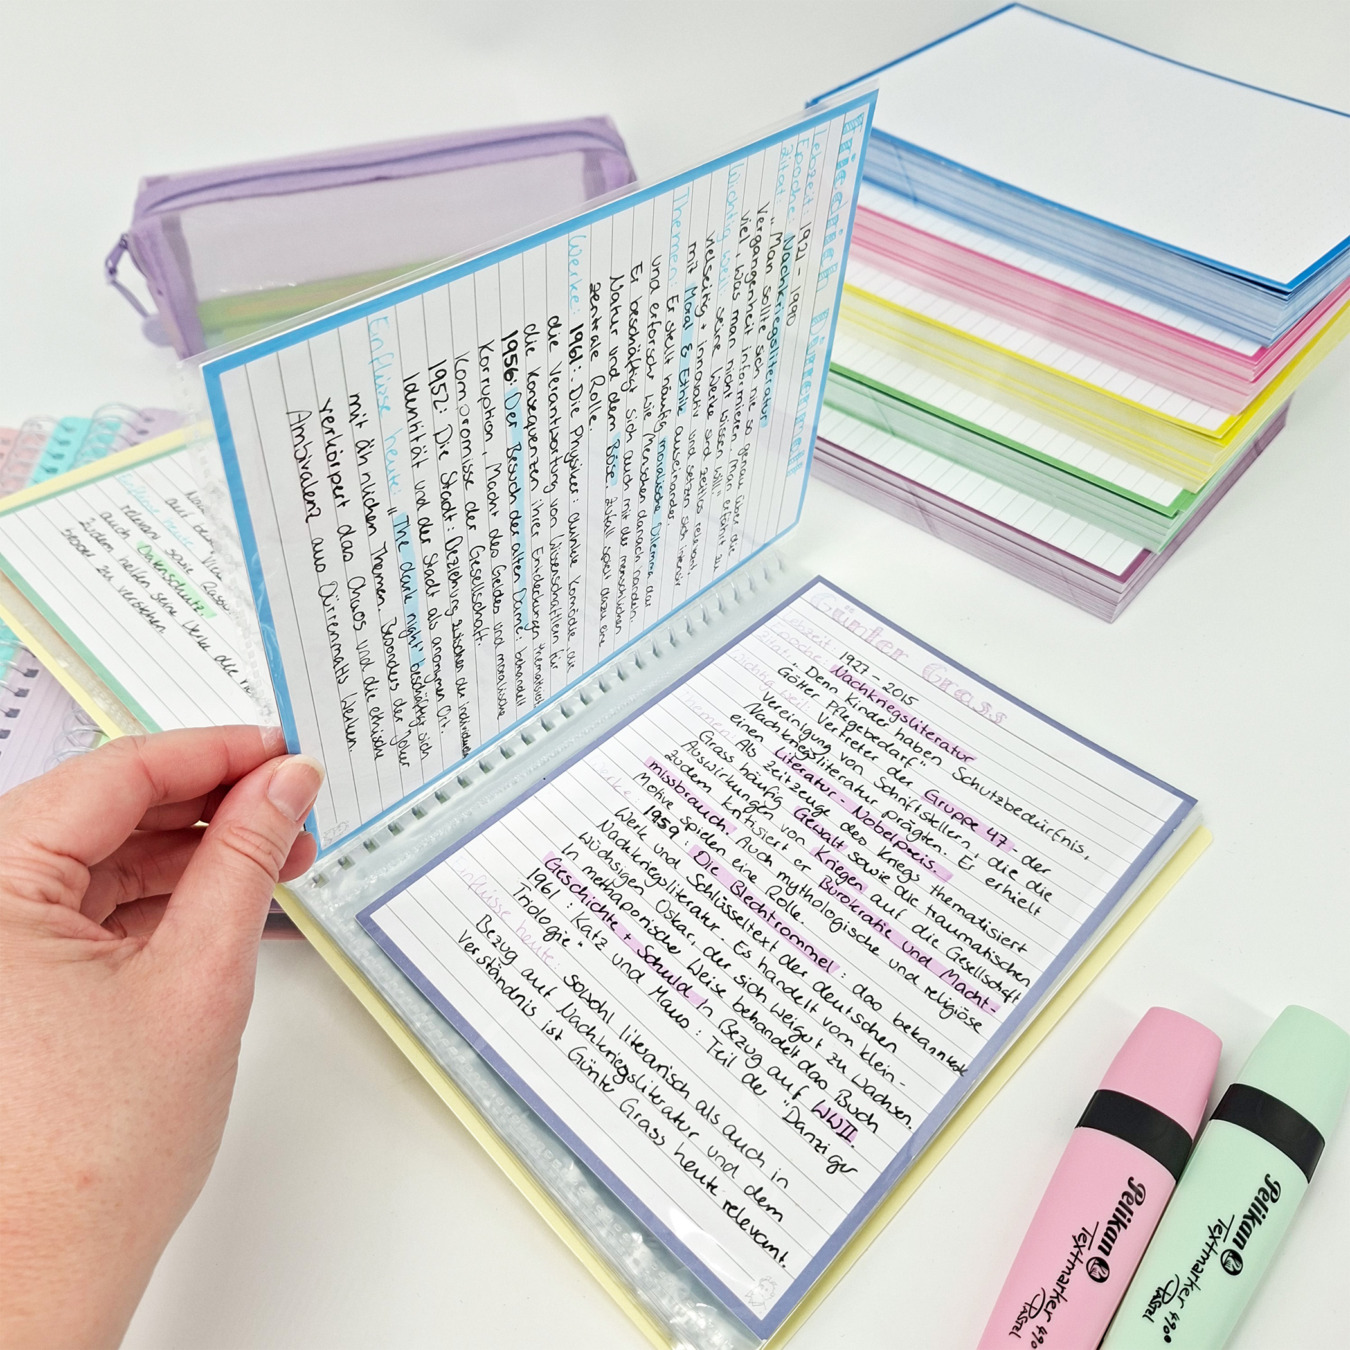 Friedrich Dürrenmatt
Lebzeit: 1921 - 1990
Epoche: Nachkriegsliteratur
Zitat: "Man sollte sich nie so genau über die
Vergangenheit informieren. Man erfährt zu
viel, was man nicht wissen will."
Wichtig weil: seine Werke sind zeitlos relevant,
vielseitig + innovativ und setzen sich intensiv
mit Moral & Ethik auseinander.
Themen: Er stellt häufig moralische Dilemma dar
und erforscht wie Menschen danach handeln.
Er beschäftigt sich auch mit der menschlichen
Natur und dem Böse. Zufall spielt dazu eine
zentrale Rolle.
Werke: 1961: Die Physiker: dunkle Komödie, die
die Verantwortung von Wissenschaftlern für
die Konsequenzen ihrer Entdeckungen thematisiert
1956: Der Besuch der alten Dame: behandelt
Korruption, Macht des Geldes und moralische
Kompromisse der Gesellschaft.
1952: Die Stadt: Beziehung zwischen der individuellen
Identität und der Stadt als anonymen Ort.
Einflüsse heute: "The dark night" beschäftigt sich
mit ähnlichen Themen. Besonders der Joker
verkörpert das Chaos und die ethische
Ambivalenz aus Dürrenmatts Werken.
Günter Grass
Lebzeit: 1927 - 2015
Epoche: Nachkriegsliteratur
Zitat: "Denn Kinder haben Schutzbedürfnis,
Götter Pflegebedarf"
Wichtig weil: Vertreter der Gruppe 47 - der
Vereinigung von Schriftsteller, die die
Nachkriegsliteratur prägten. Er erhielt
einen Literatur-Nobelpreis.
Themen: Als Zeitzeuge des Kriegs thematisiert
Grass häufig Gewalt sowie die traumatischen
Auswirkungen von Kriegen auf die Gesellschaft
zudem kritisiert er Bürokratie und Macht-
missbrauch. Auch mythologische und religiöse
Motive spielen eine Rolle.
Werke: 1959: Die Blechtrommel: das bekannteste
Werk und Schlüsseltext der deutschen
Nachkriegsliteratur. Es handelt vom klein-
wüchsigen Oskar, der sich weigert zu wachsen.
In methaporischer Weise behandelt das Buch
Geschichte + Schuld in Bezug auf WWII.
1961: Katz und Maus: Teil der "Danziger
Triologie"
Einflüsse heute: sowohl literarisch als auch in
Bezug auf Nachkriegsliteratur und dem
Verständnis ist Günter Grass heute relevant.
auch Datenschutz.
Zudem helfen seine Werke die
besser zu verstehen.
Pelikan
Textmarker 490
Pastel
Pelikan
Textmarker 490
Pastel